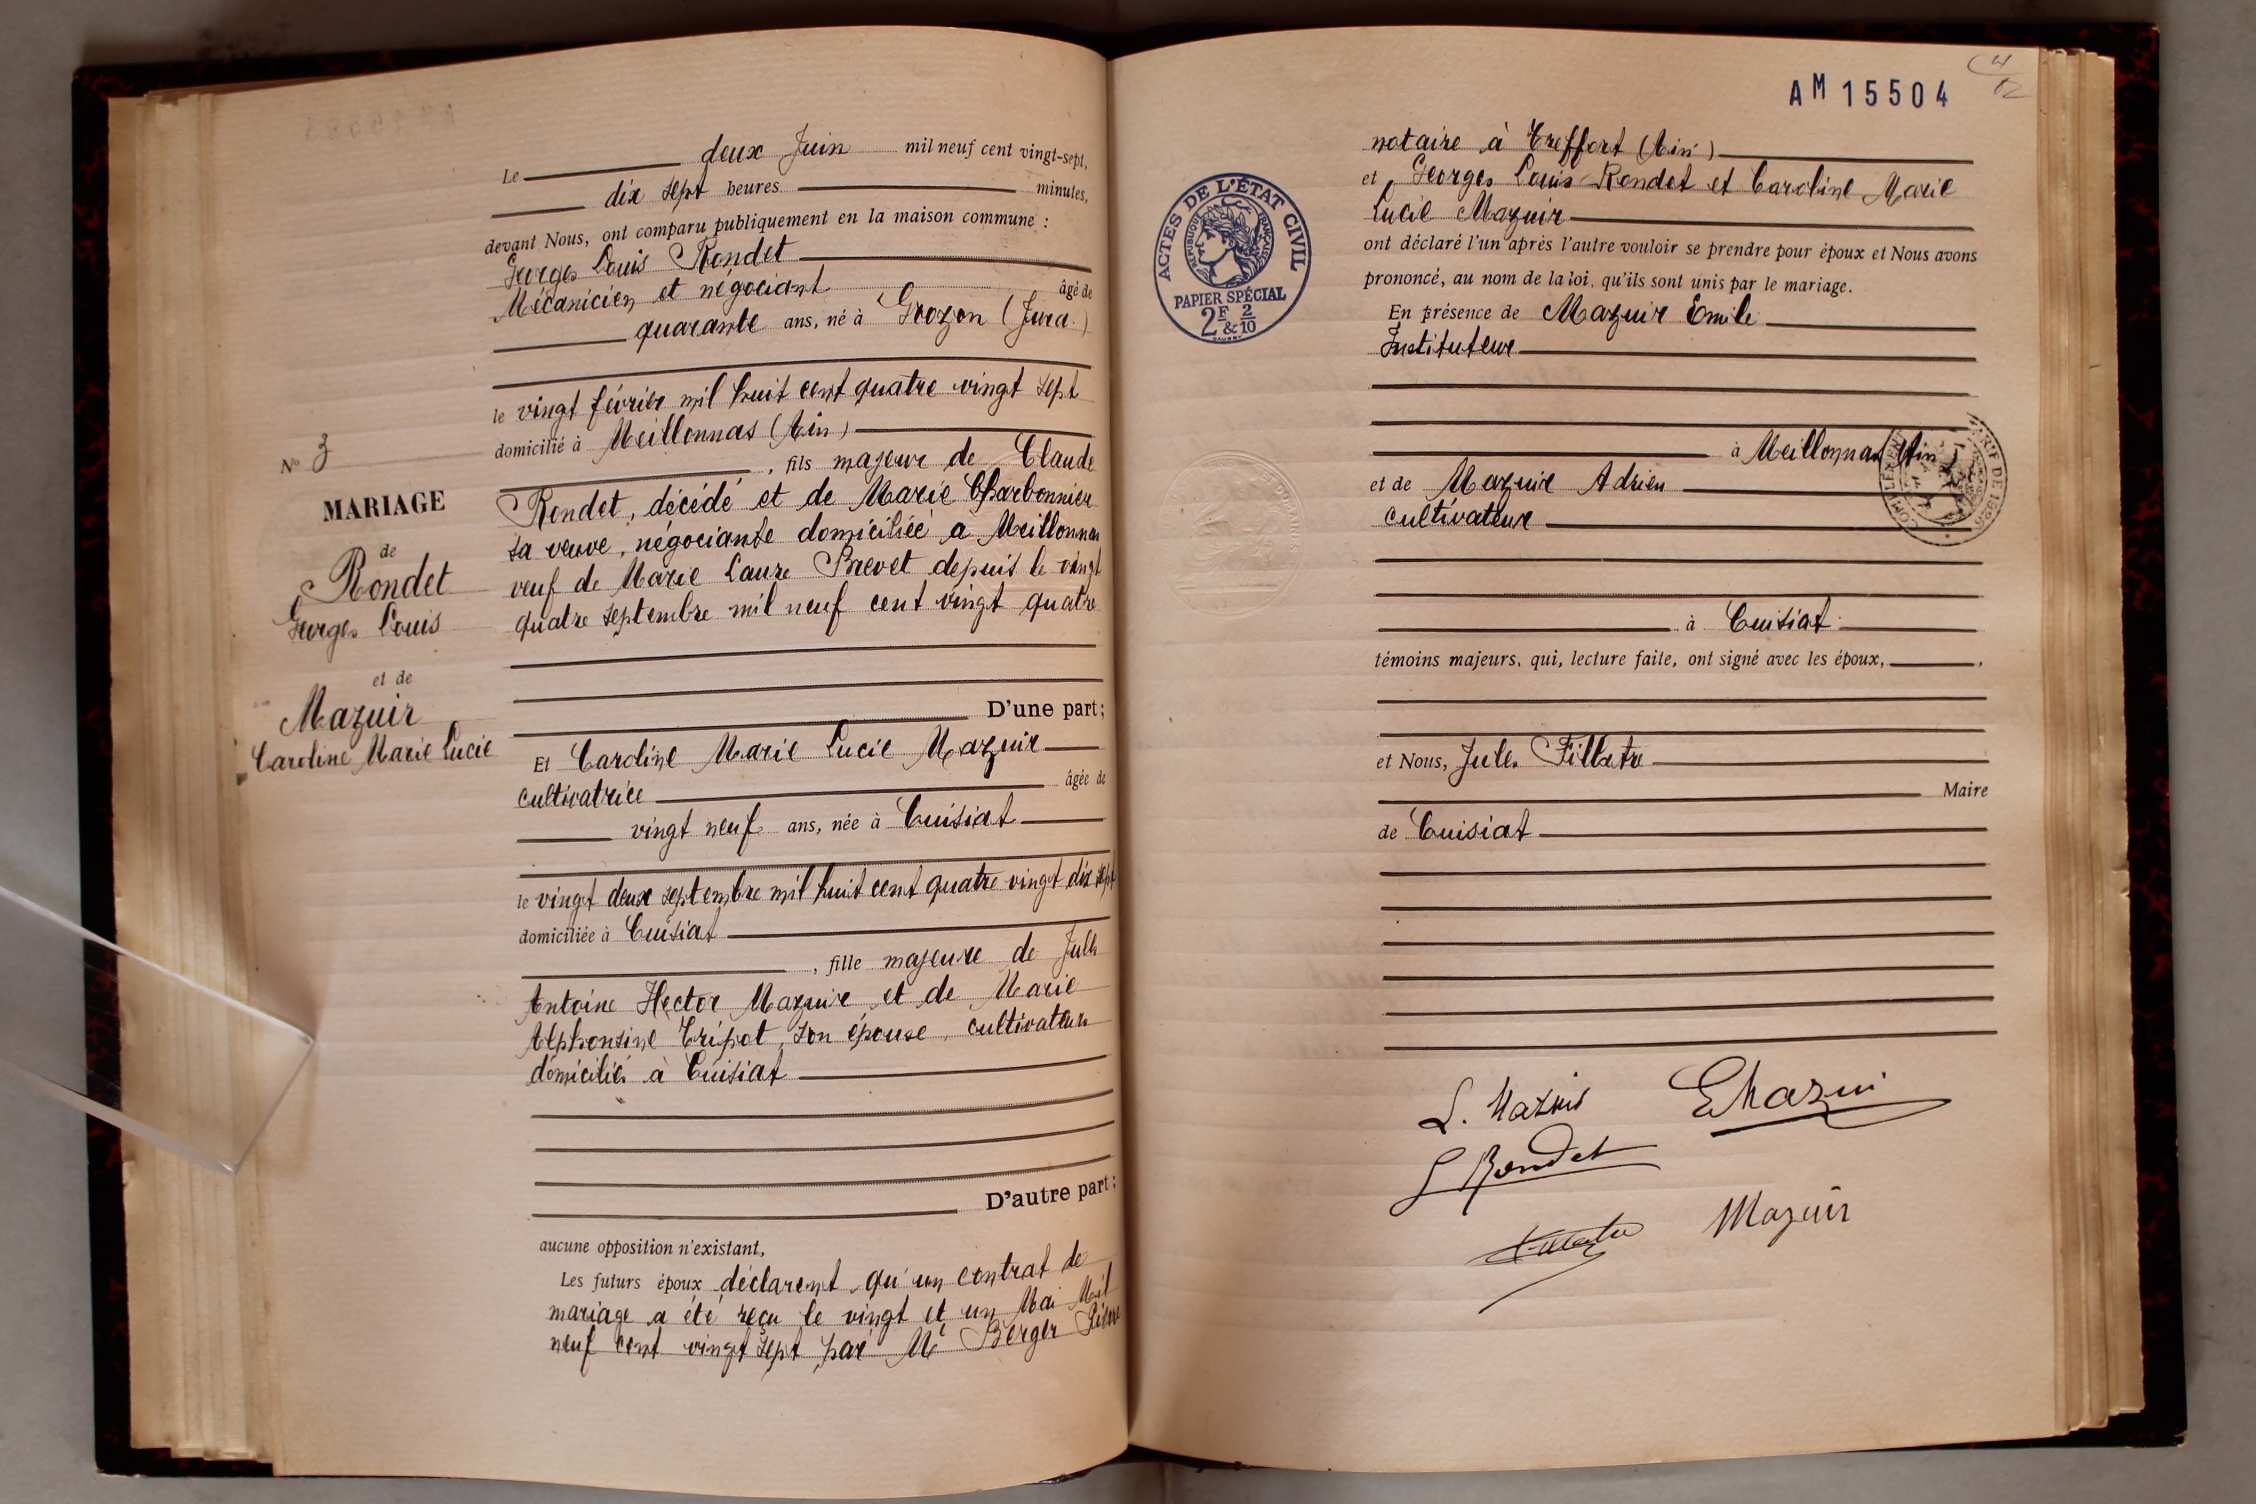 Le deux Juin mil neuf cent vingt-sept,
dix sept heures minutes,
devant Nous, ont comparu publiquement en la maison commune :
Georges Louis Rondet
Mécanicien et négociant âgé de
quarante ans, né à Grozon (Jura)
le vingt février mil huit cent quatre vingt sept
domicilié à Meillonnas (Ain)
, fils majeur de Claude
Rondet, décédé et de Marie Charbonnier
sa veuve, négociante domiciliée à Meillonnas
veuf de Marie Laure Brevet depuis le vingt
quatre septembre mil neuf cent vingt quatre
D'une part ;
N° 3
MARIAGE
de
Rondet
Georges Louis
et de
Mazuir
Caroline Marie Lucie
Et Caroline Marie Lucie Mazuir
cultivatrice âgée de
vingt neuf ans, née à Cuisiat
le vingt deux septembre mil huit cent quatre vingt dix sept
domiciliée à Cuisiat
, fille majeure de Jules
Antoine Hector Mazuir et de Marie
Alphonsine Tripot, son épouse, cultivateurs
domiciliés à Cuisiat
D'autre part ;
aucune opposition n'existant,
Les futurs époux déclarent qu'un contrat de
mariage a été reçu le vingt et un Mai Mil
neuf cent vingt sept par Me Berger
AM 15504
4
12
notaire à Treffort (Ain)
et Georges Louis Rondet et Caroline Marie
Lucie Mazuir
ont déclaré l'un après l'autre vouloir se prendre pour époux et Nous avons
prononcé, au nom de la loi, qu'ils sont unis par le mariage.
En présence de Mazuir Emile
Instituteur
à Meillonnas (Ain)
et de Mazuir Adrien
cultivateur
à Cuisiat
témoins majeurs, qui, lecture faite, ont signé avec les époux,
et Nous, Jules Fillatre
Maire
de Cuisiat
ACTES DE L'ÉTAT CIVIL
RÉPUBLIQUE FRANÇAISE
PAPIER SPÉCIAL
2F & 2/10
TARIF DE 1926
L. Mazuir
E Mazuir
G Rondet
Fillatre
Mazuir